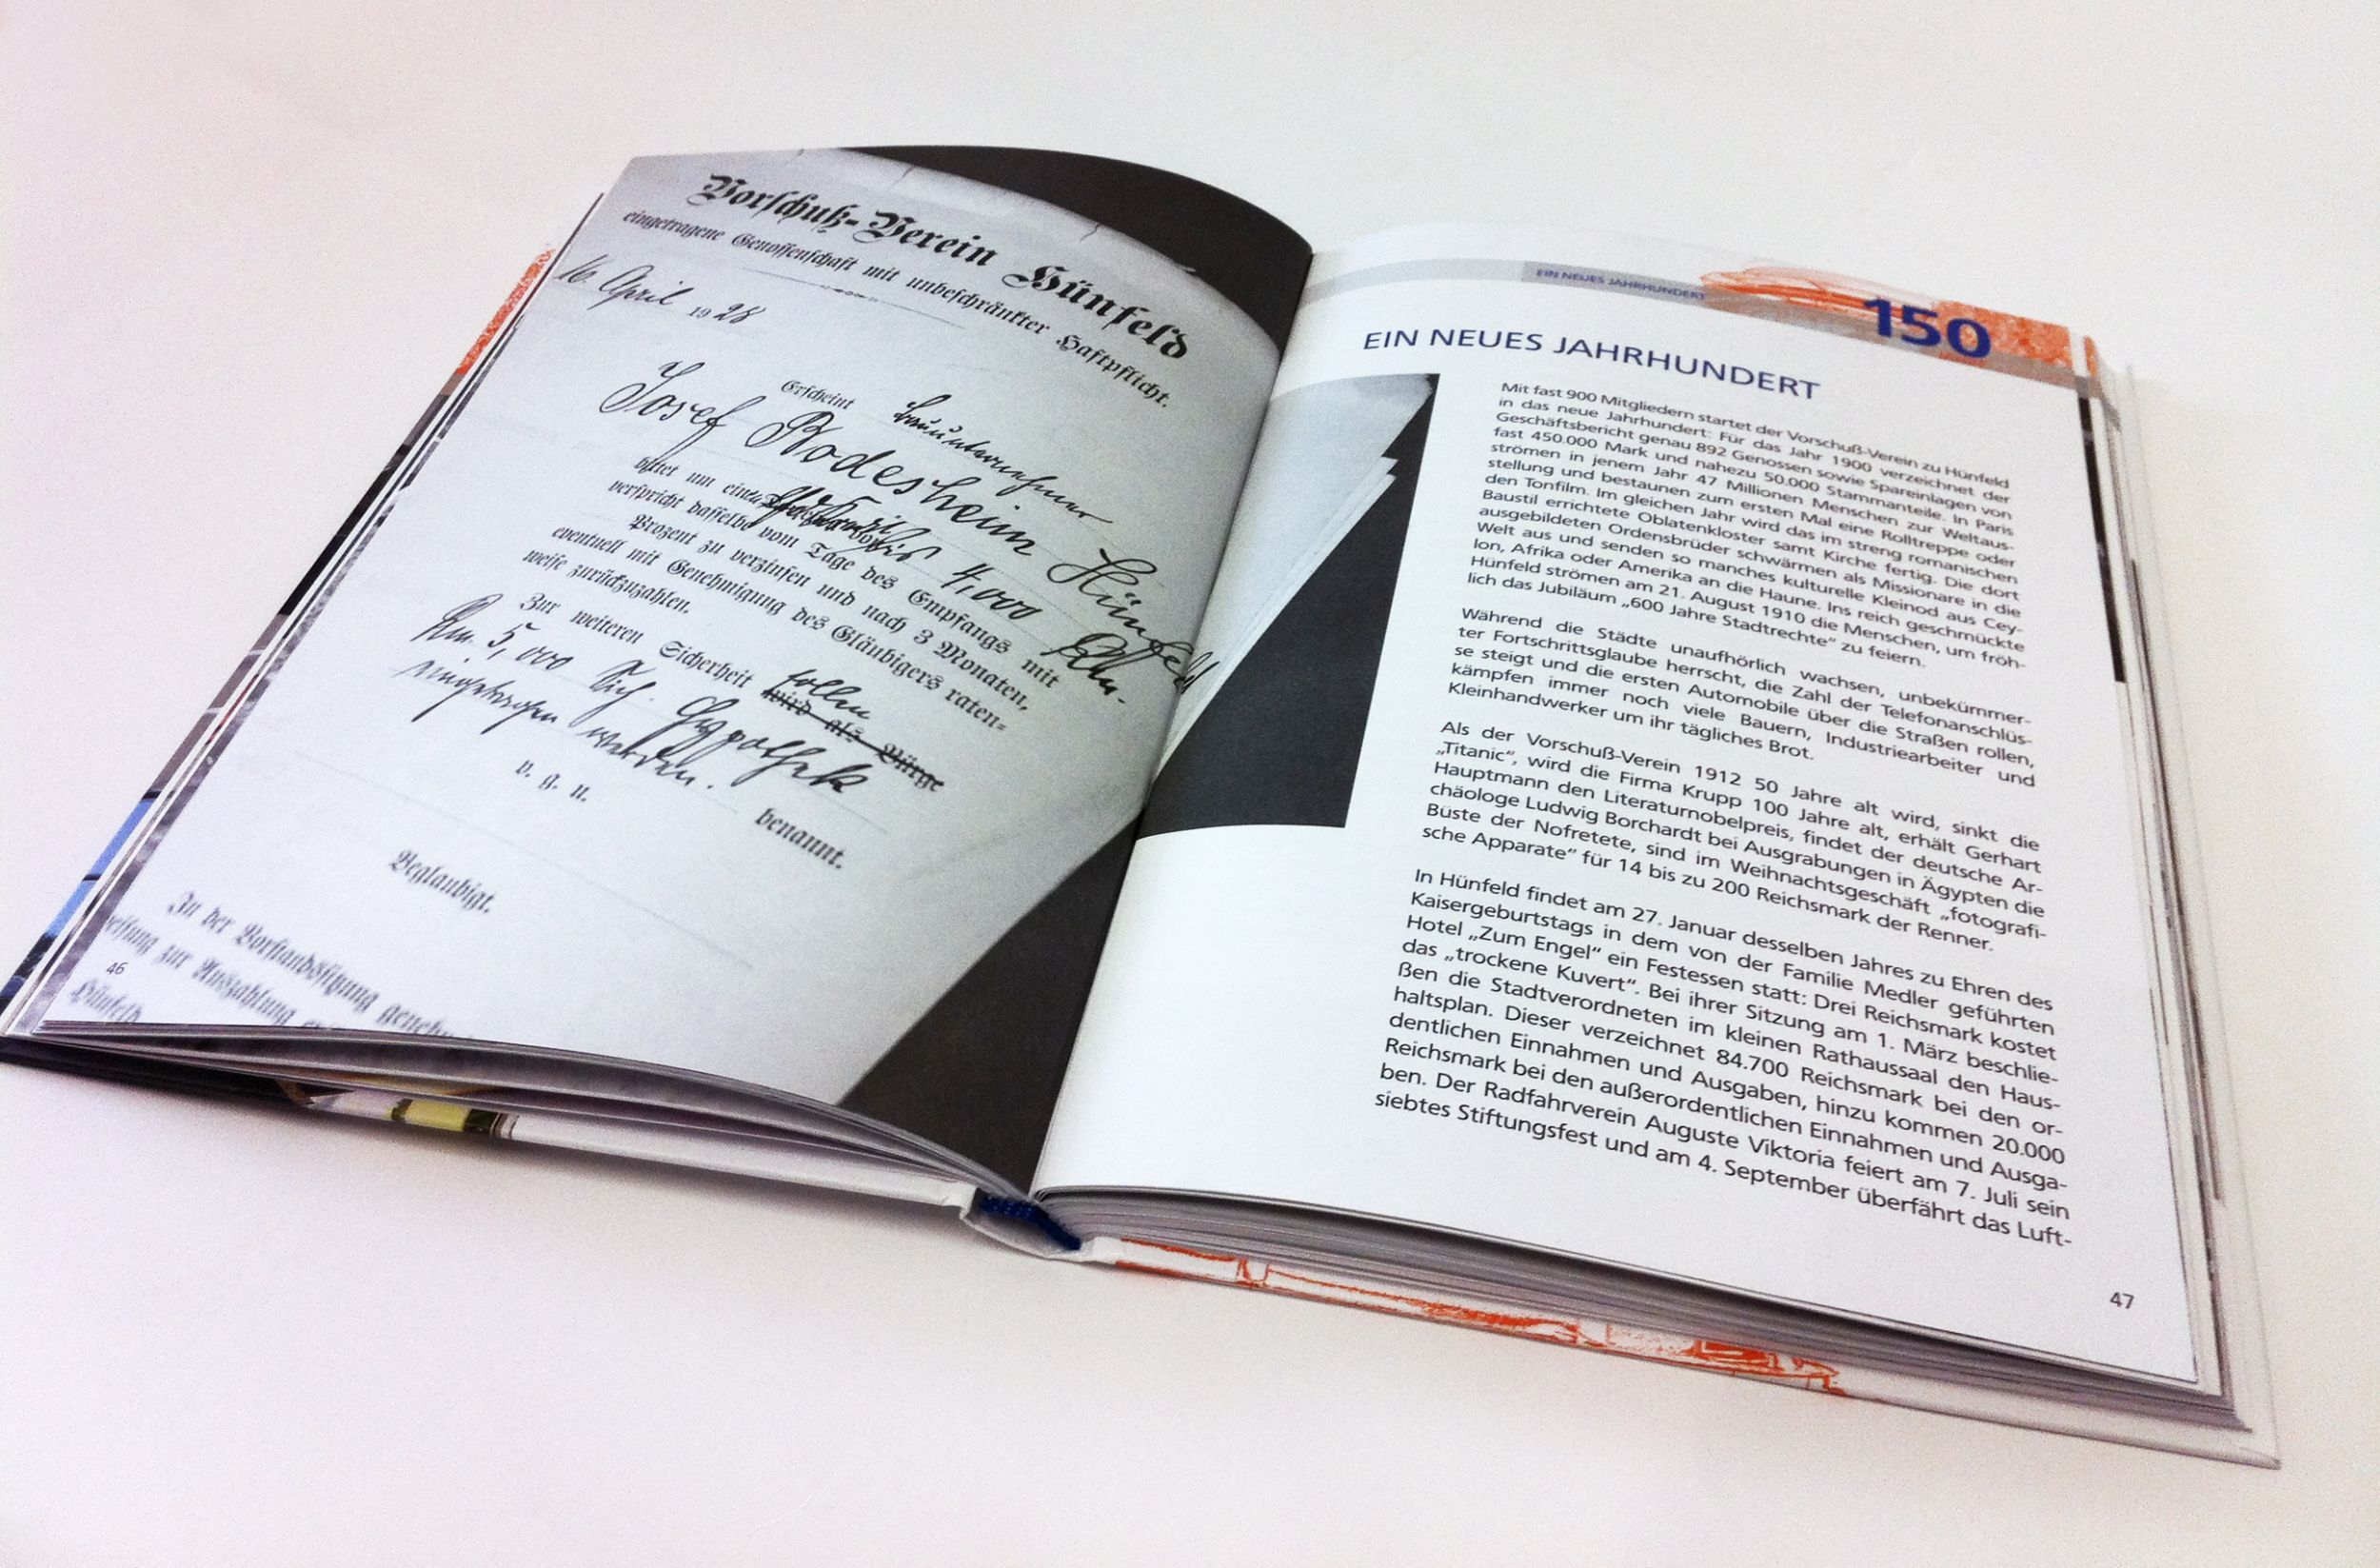 Vorschuß-Verein Hünfeld
eingetragene Genossenschaft mit unbeschränkter Haftpflicht.
16. April 1928
Erscheint Bauunternehmer
Josef Rodesheim Hünfeld
bittet um 4,000 Rm.
verspricht dasselbe vom Tage des Empfangs mit
Prozent zu verzinsen und nach 3 Monaten,
eventuell mit Genehmigung des Gläubigers raten-
weise zurückzuzahlen.
Zur weiteren Sicherheit sollen
wird als Bürge
Rm. 5,000 Sich. Hypothek
eingetragen werden.
benannt.
v. g. u.
Beglaubigt.
In der Vorstandssitzung
zur Auszahlung
Hünfeld
46
EIN NEUES JAHRHUNDERT
150
EIN NEUES JAHRHUNDERT
Mit fast 900 Mitgliedern startet der Vorschuß-Verein zu Hünfeld
in das neue Jahrhundert: Für das Jahr 1900 verzeichnet der
Geschäftsbericht genau 892 Genossen sowie Spareinlagen von
fast 450.000 Mark und nahezu 50.000 Stammanteile. In Paris
strömen in jenem Jahr 47 Millionen Menschen zur Weltaus-
stellung und bestaunen zum ersten Mal eine Rolltreppe oder
den Tonfilm. Im gleichen Jahr wird das im streng romanischen
Baustil errichtete Oblatenkloster samt Kirche fertig. Die dort
ausgebildeten Ordensbrüder schwärmen als Missionare in die
Welt aus und senden so manches kulturelle Kleinod aus Cey-
lon, Afrika oder Amerika an die Haune. Ins reich geschmückte
Hünfeld strömen am 21. August 1910 die Menschen, um fröh-
lich das Jubiläum „600 Jahre Stadtrechte“ zu feiern.
Während die Städte unaufhörlich wachsen, unbekümmer-
ter Fortschrittsglaube herrscht, die Zahl der Telefonanschlüs-
se steigt und die ersten Automobile über die Straßen rollen,
kämpfen immer noch viele Bauern, Industriearbeiter und
Kleinhandwerker um ihr tägliches Brot.
Als der Vorschuß-Verein 1912 50 Jahre alt wird, sinkt die
„Titanic“, wird die Firma Krupp 100 Jahre alt, erhält Gerhart
Hauptmann den Literaturnobelpreis, findet der deutsche Ar-
chäologe Ludwig Borchardt bei Ausgrabungen in Ägypten die
Büste der Nofretete, sind im Weihnachtsgeschäft „fotografi-
sche Apparate“ für 14 bis zu 200 Reichsmark der Renner.
In Hünfeld findet am 27. Januar desselben Jahres zu Ehren des
Kaisergeburtstags in dem von der Familie Medler geführten
Hotel „Zum Engel“ ein Festessen statt: Drei Reichsmark kostet
das „trockene Kuvert“. Bei ihrer Sitzung am 1. März beschlie-
ßen die Stadtverordneten im kleinen Rathaussaal den Haus-
haltsplan. Dieser verzeichnet 84.700 Reichsmark bei den or-
dentlichen Einnahmen und Ausgaben, hinzu kommen 20.000
Reichsmark bei den außerordentlichen Einnahmen und Ausga-
ben. Der Radfahrverein Auguste Viktoria feiert am 7. Juli sein
siebtes Stiftungsfest und am 4. September überfährt das Luft-
47